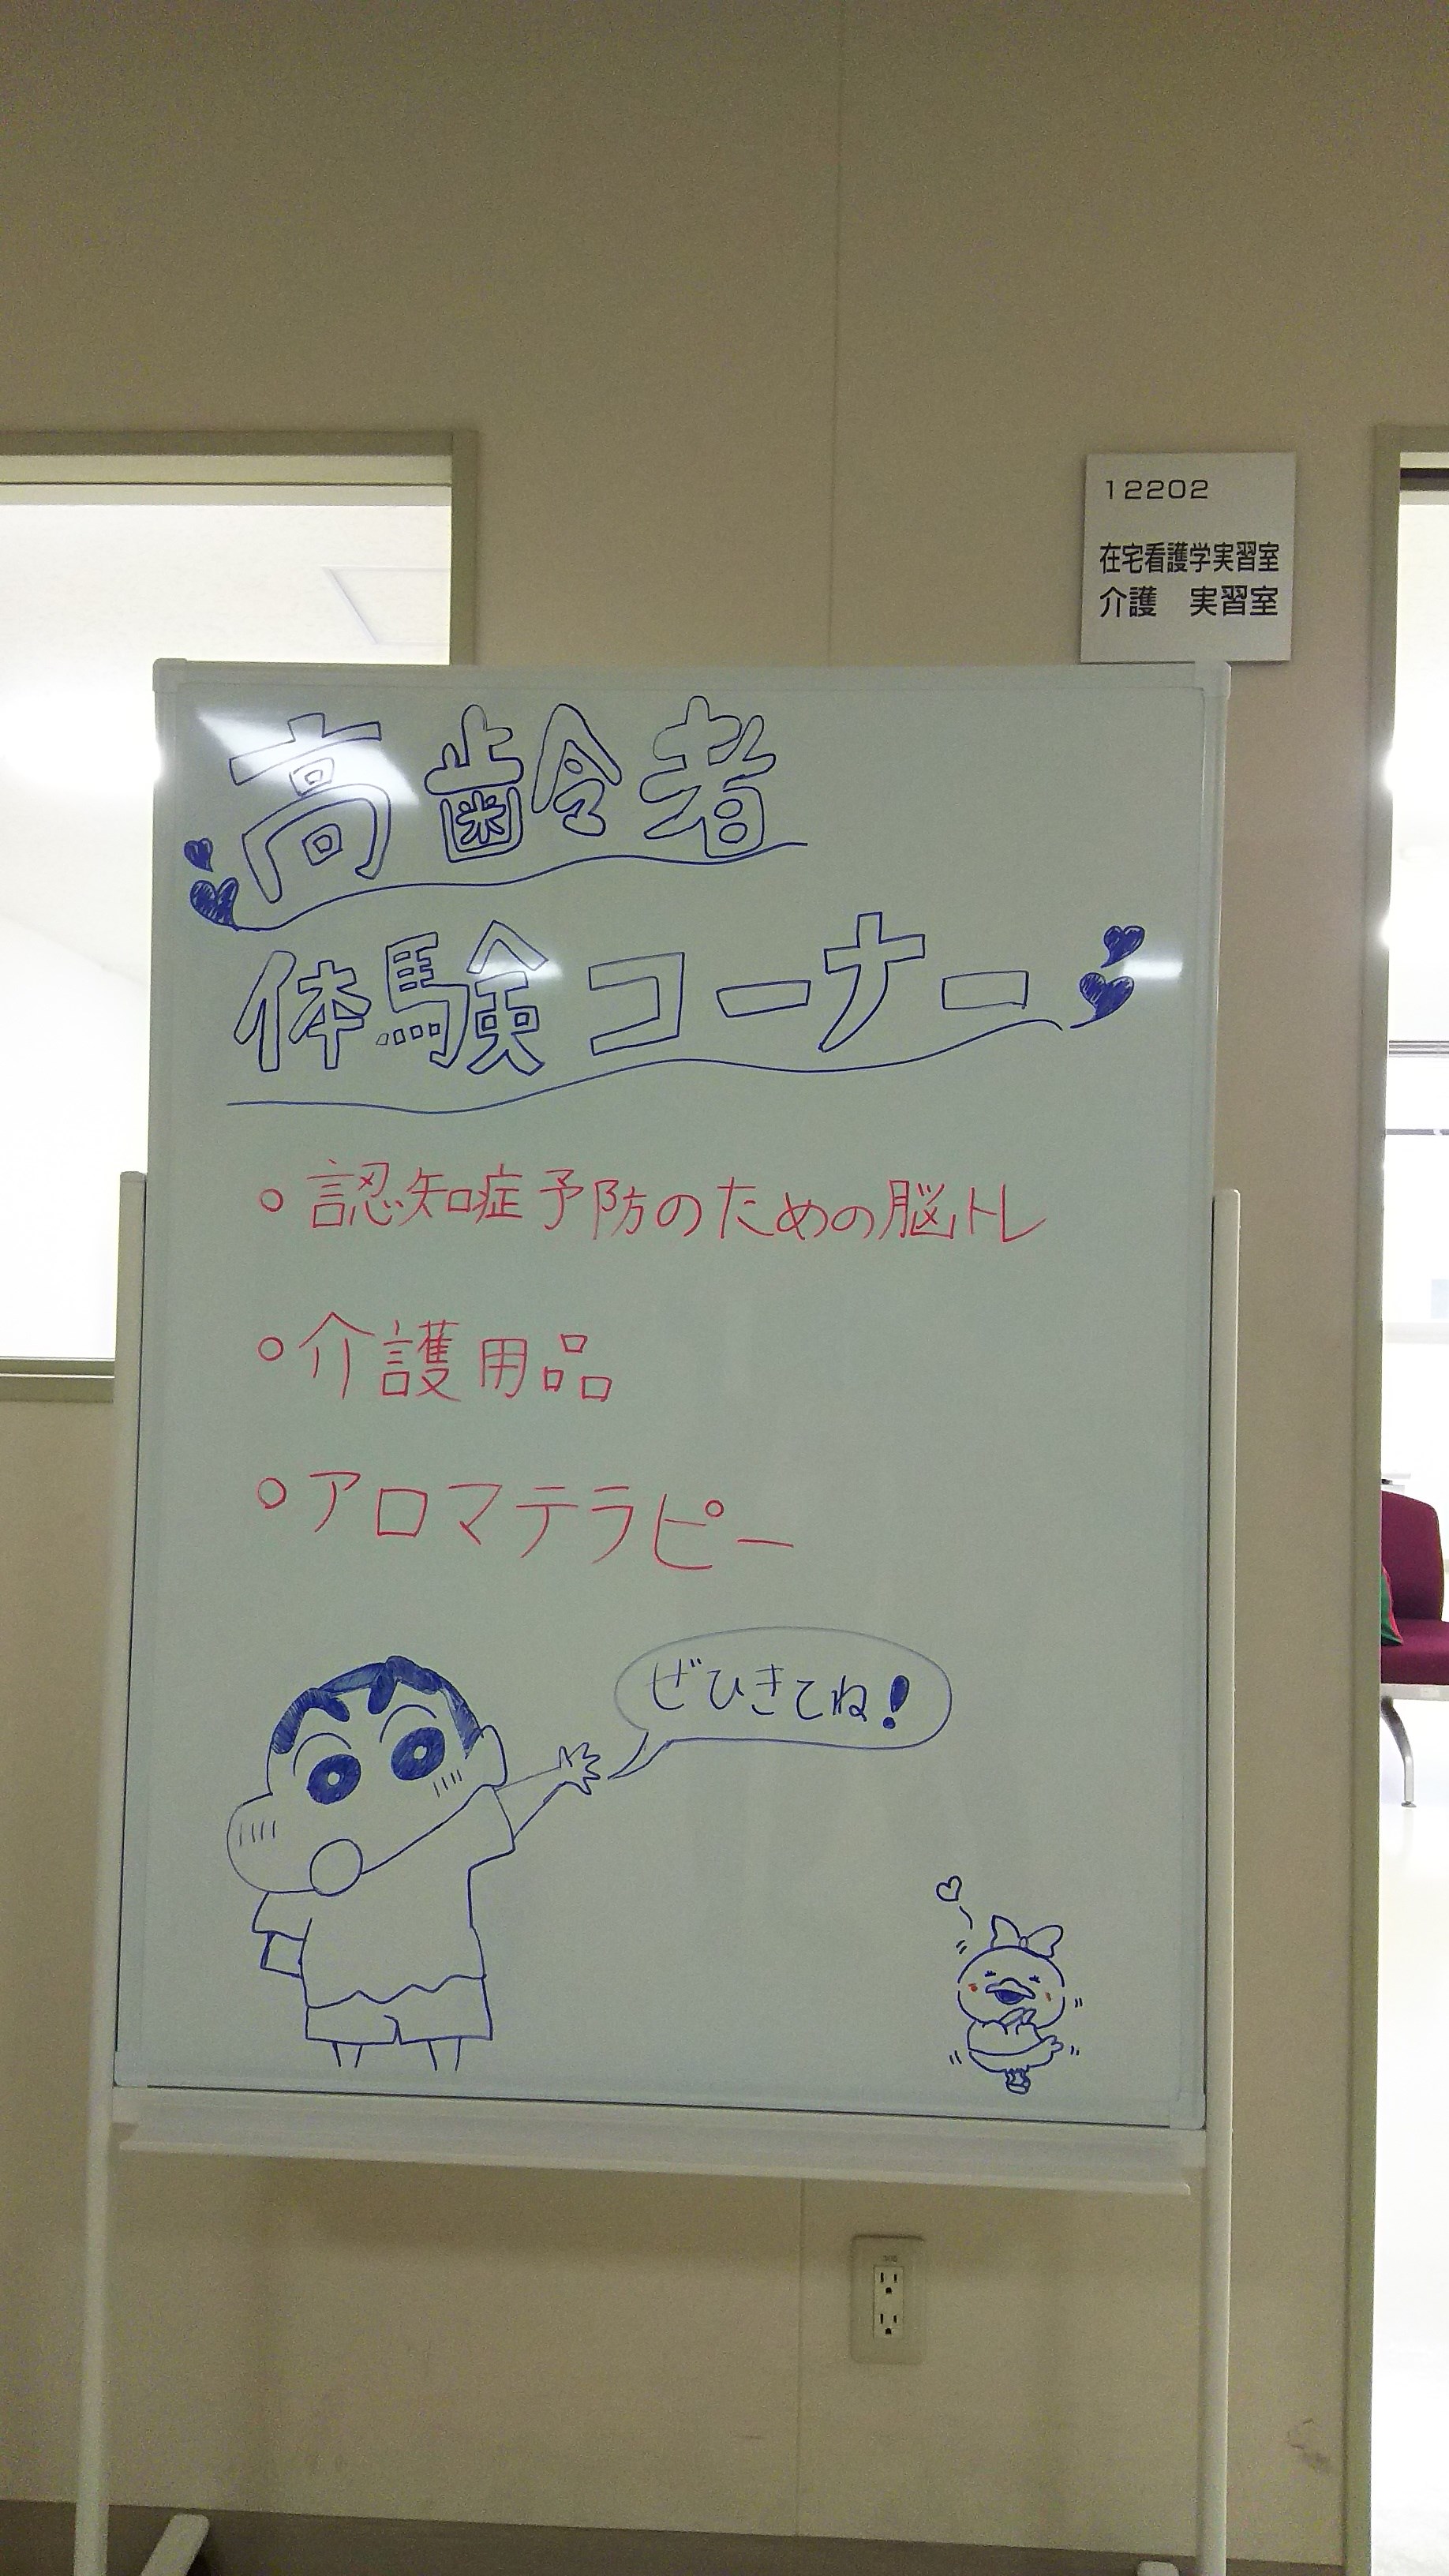 12202
在宅看護学実習室
介護 実習室
高齢者
体験コーナー
○ 認知症予防のための脳トレ
○ 介護用品
○ アロマテラピー
ぜひきてね!